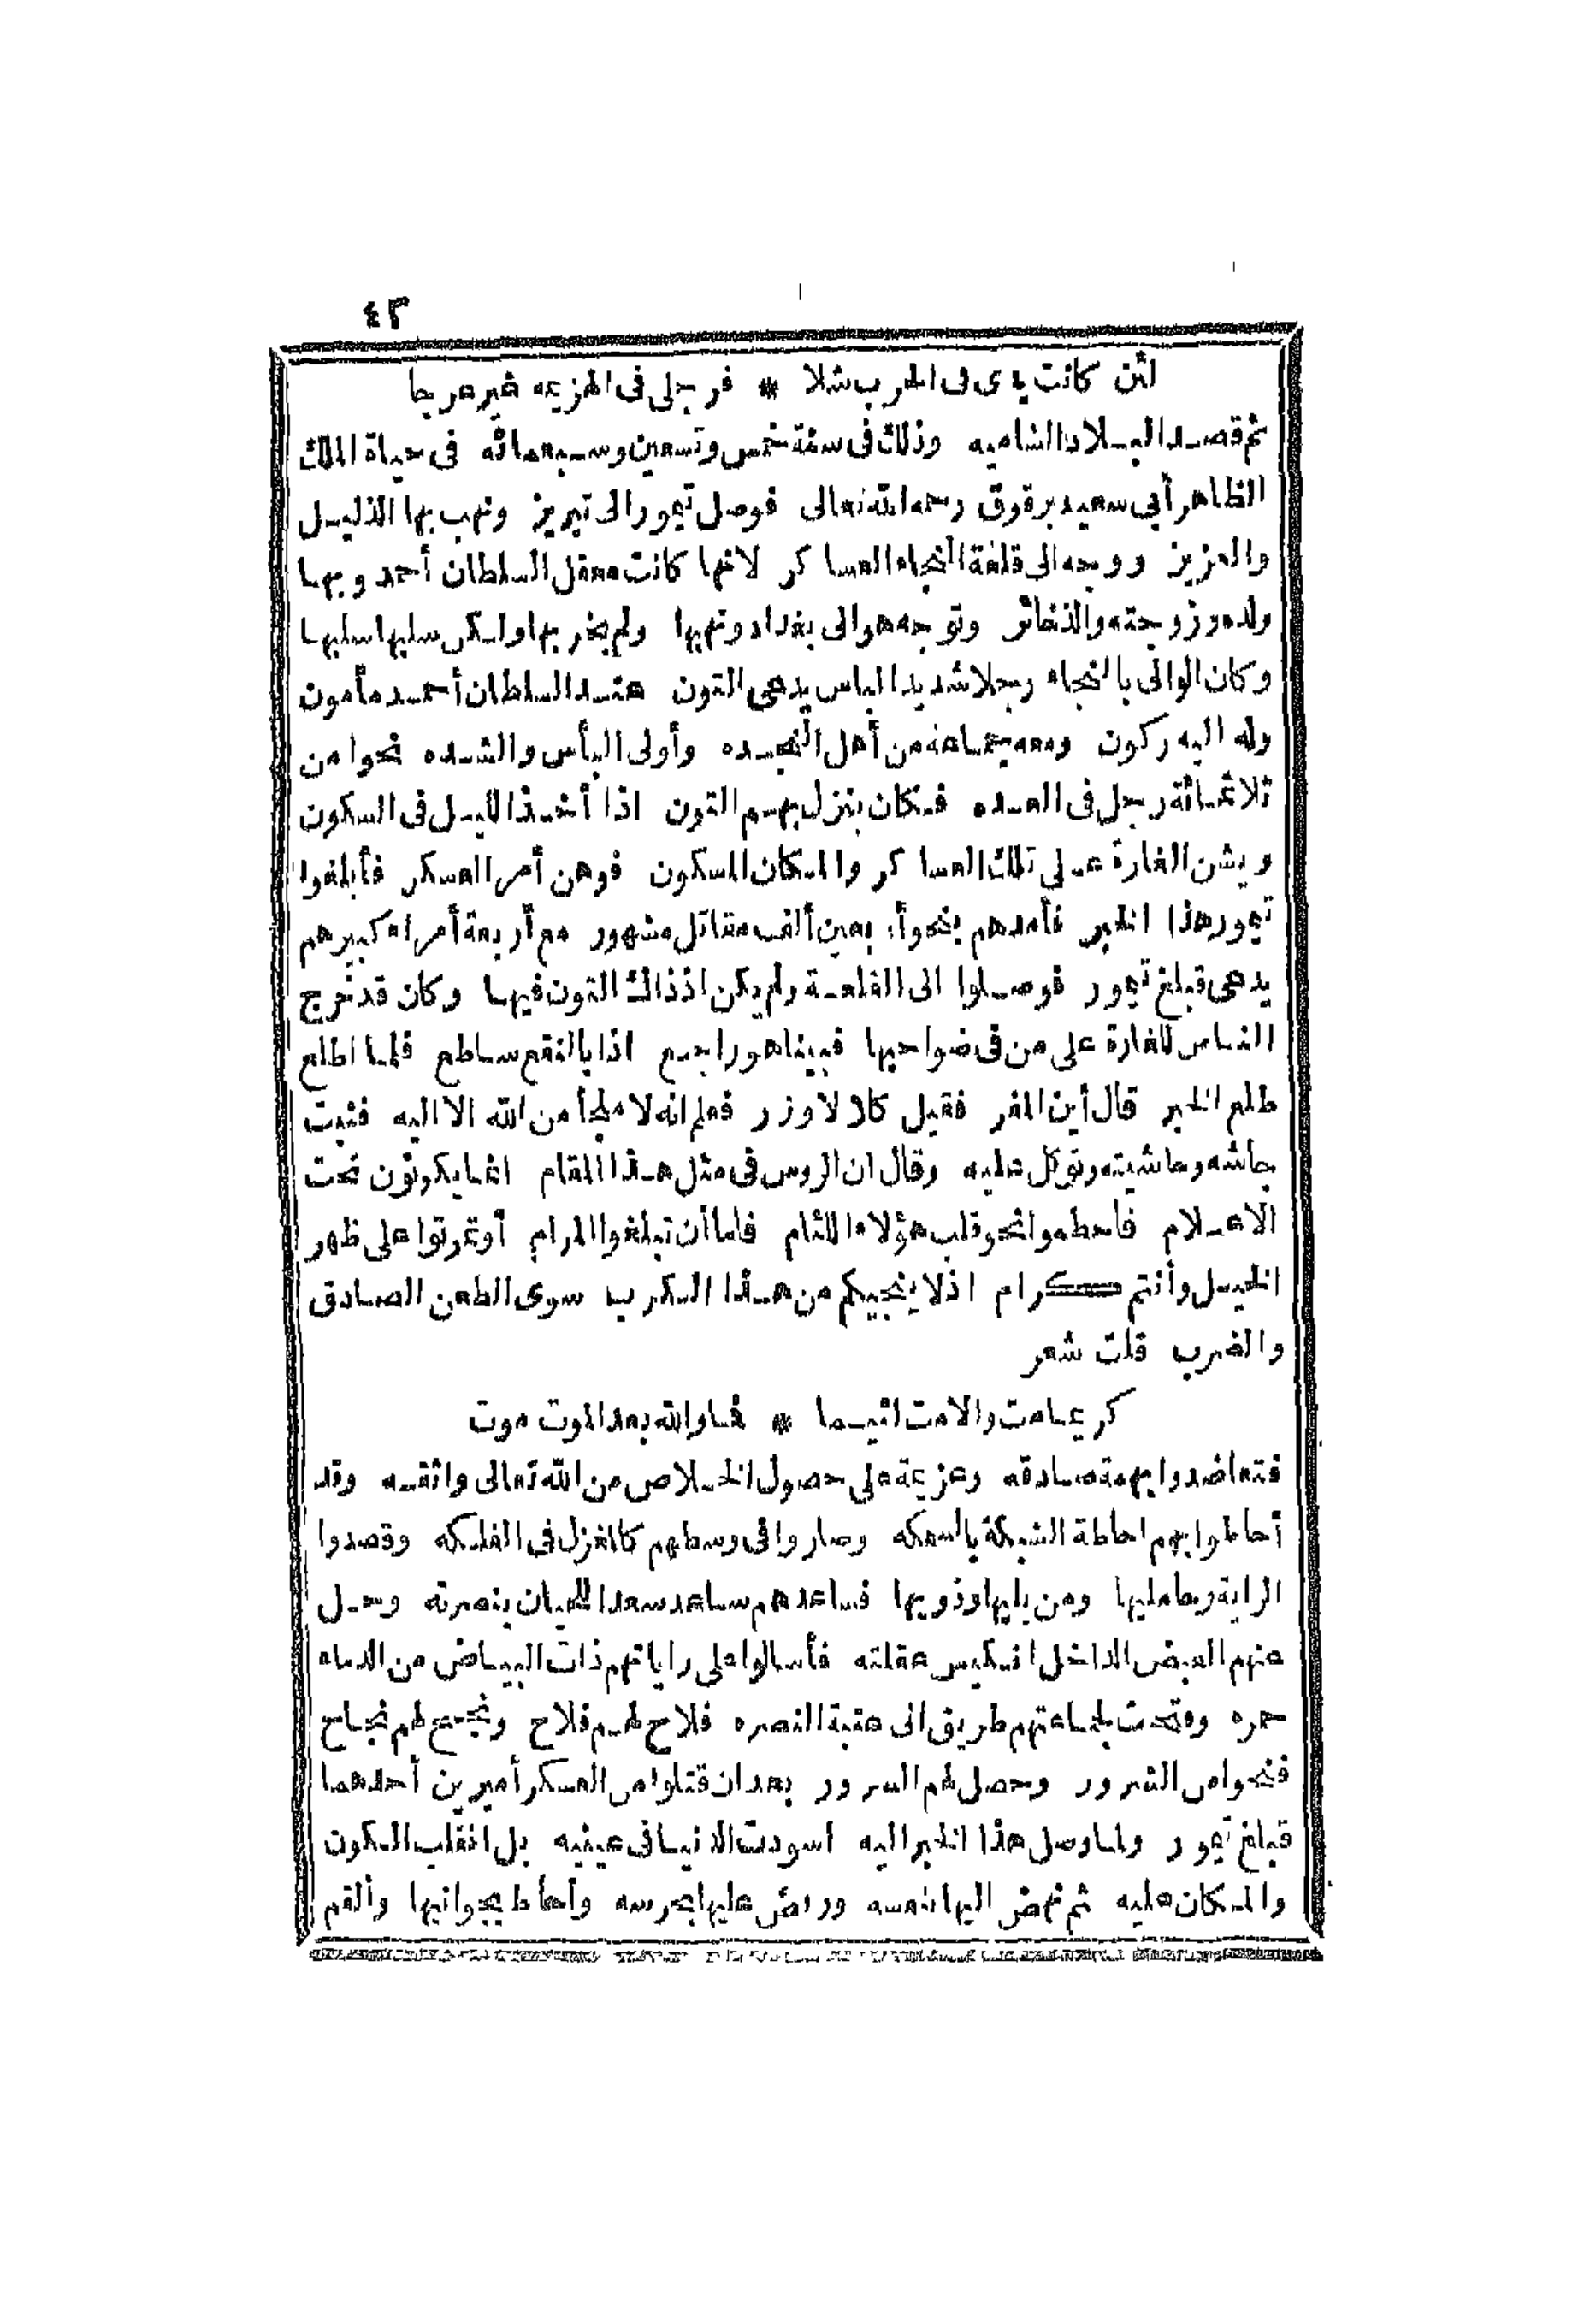 ٤٣
لئن كانت يدى فى الحرب شلا * فرجلى فى الهزيمه غير عرجا
ثم قصد البلاد الشاميه وذلك فى سنة خمس وتسعين وسبعمائه فى حياة الملك
الظاهر أبى سعيد برقوق رحمه الله تعالى فوصل تيمور الى تبريز ونهب بها الذليل
والعزيز ووجه الى قلعة النجاه العساكر لانها كانت معقل السلطان أحمد وبها
ولده وزوجته والذخائر وتوجه هو الى بغداد ونهبها ولم يخربها ولكن سلبها سلبها
وكان الوالى بالنجاه رجلا شديد الباس يدعى التون عند السلطان أحمد مأمون
وله اليه ركون ومعه جماعة من أهل النجده وأولى البأس والشده نحوا من
ثلاثمائة رجل فى العده فكان ينزل بهم التون اذا أخذ الليل فى السكون
ويشن الغارة على تلك العساكر والمكان المسكون فوهن أمر العسكر فأبلغوا
تيمور هذا الخبر فأمدهم بنحو أربعين ألف مقاتل مشهور مع أربعة أمراء كبيرهم
يدعى قبلغ تيمور فوصلوا الى القلعة ولم يكن اذ ذاك التون فيها وكان قد خرج
الناس للغارة على من فى ضواحيها فبينا هو راجع اذا بالنقع ساطع فلما اطلع
طلع الخبر قال أين المفر فقيل كلا لا وزر فعلم انه لا ملجأ من الله الا اليه فثبت
جاشه وحاشيته وتوكل عليه وقال ان الروس فى مثل هذا المقام انما يكونون تحت
الاعلام فاحطموا نحو قلب هؤلاء اللئام فاما أن تبلغوا المرام أو تموتوا على ظهر
الخيل وأنتم كرام اذ لا ينجيكم من هذا الكرب سوى الطعن الصادق
والضرب قلت شعر
كريما مت والا مت لئيما * فما والله بعد الموت موت
فتعاضدوا بهمة صادقه وعزيمة على حصول الخلاص من الله تعالى واثقه وقد
أحاطوا بهم احاطة الشبكة بالسمكه وصاروا فى وسطهم كالمغزل فى الفلكه وقصدوا
الراية وحامليها ومن يليها وذويها فساعدهم ساعد سعد اللحيان بنصرته وحل
عنهم القبض الداخل انكيس عقلته فأسالوا على راياتهم ذات البياض من الدماء
حمره وفتحت لجماعتهم طريق الى عتبة النصره فلاح لهم فلاح ونجح لهم نجاح
فنجوا من الشرور وحصل لهم السرور بعد ان قتلوا من العسكر أميرين أحدهما
قبلغ تيمور ولما وصل هذا الخبر اليه اسودت الدنيا فى عينيه بل انقلب الكون
والمكان عليه ثم نهض اليها بنفسه وربض عليها بحرسه وأحاط بجوانبها وألقم